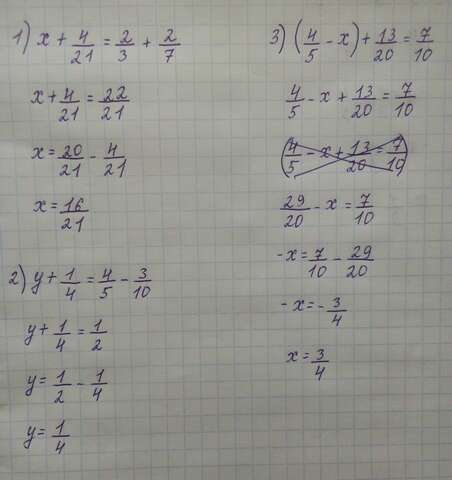 1) x + 4/21 = 2/3 + 2/7
x + 4/21 = 22/21
x = 20/21 - 4/21
x = 16/21
2) y + 1/4 = 4/5 - 3/10
y + 1/4 = 1/2
y = 1/2 - 1/4
y = 1/4
3) (4/5 - x) + 13/20 = 7/10
4/5 - x + 13/20 = 7/10
(4/5 - x + 13/20 = 7/10)
29/20 - x = 7/10
-x = 7/10 - 29/20
-x = -3/4
x = 3/4